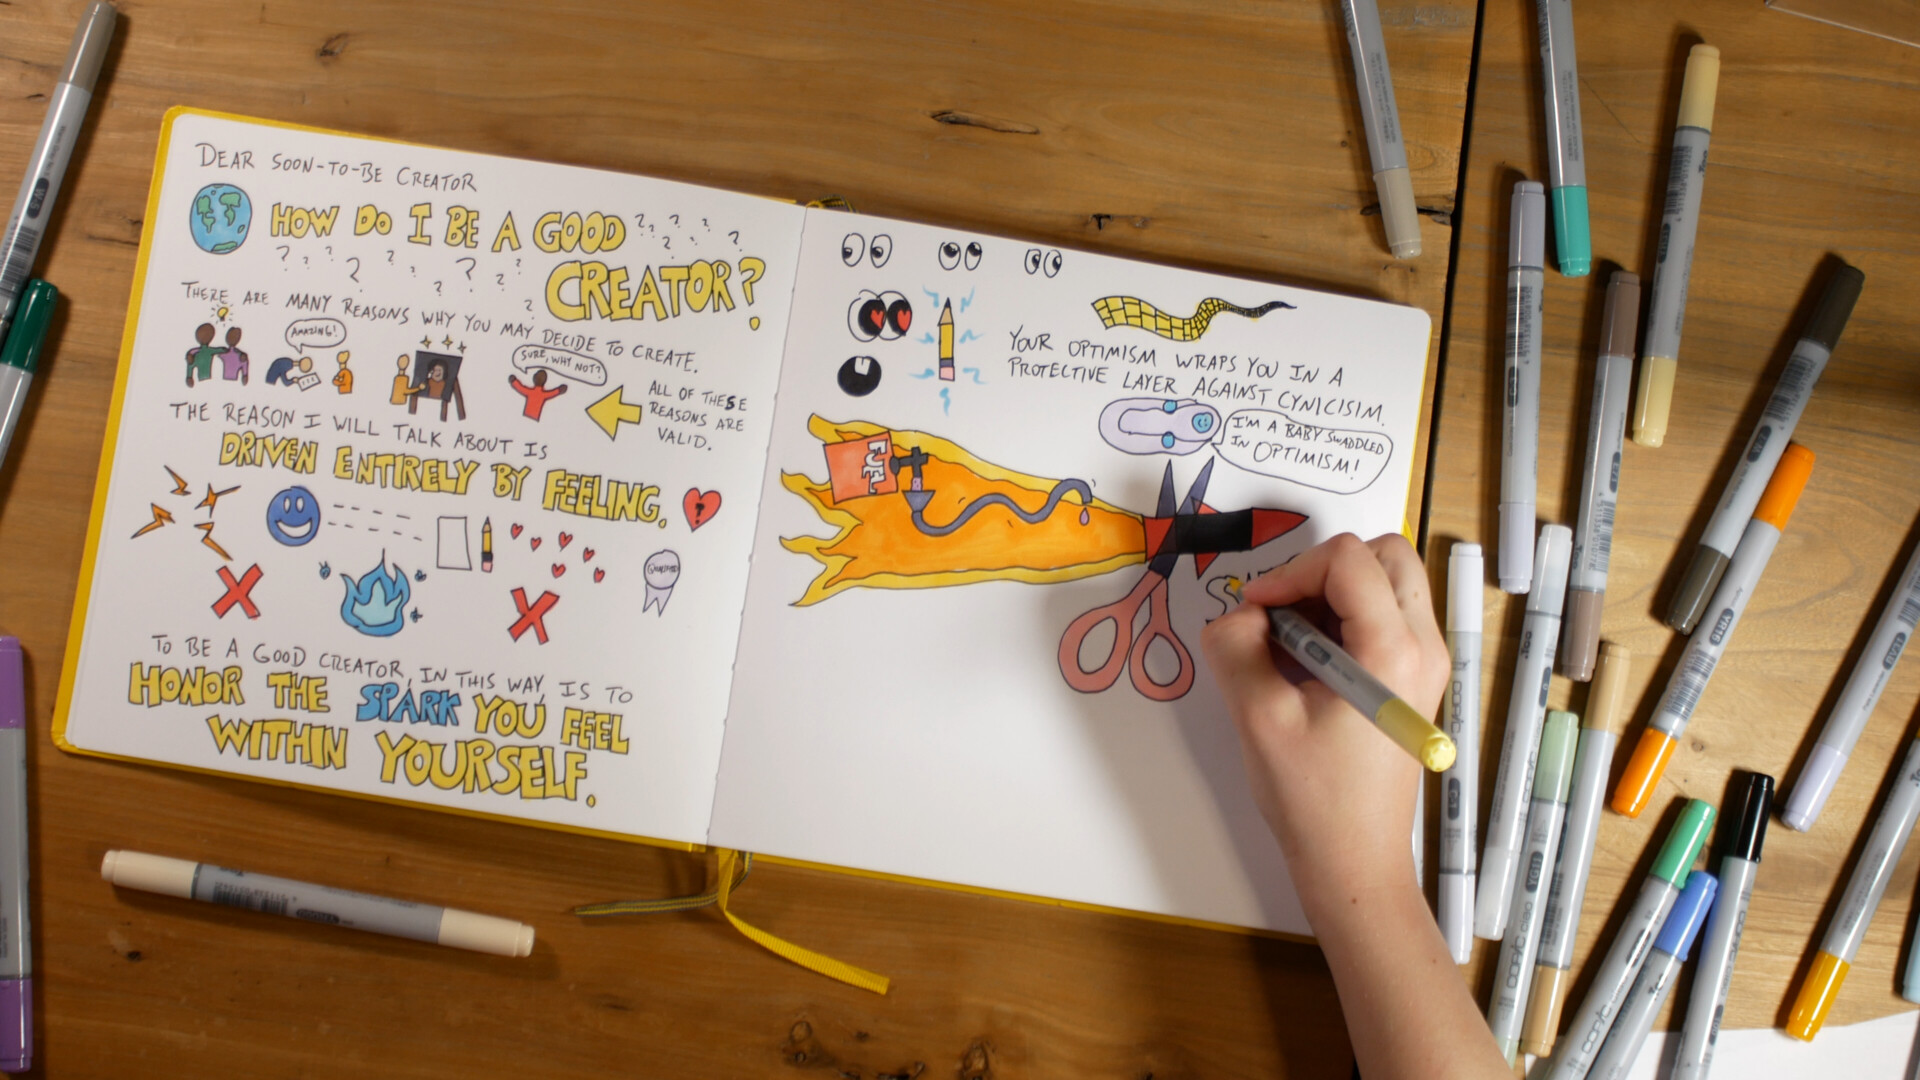 DEAR SOON-TO-BE CREATOR
HOW DO I BE A GOOD ? ? ? ? ?
? ? ? ? ? ? ? ? ? ? ?
CREATOR?
THERE ARE MANY REASONS WHY YOU MAY DECIDE TO CREATE.
AMAZING!
SURE, WHY NOT?
ALL OF THESE
REASONS ARE
VALID.
THE REASON I WILL TALK ABOUT IS
DRIVEN ENTIRELY BY FEELING.
TO BE A GOOD CREATOR, IN THIS WAY, IS TO
HONOR THE SPARK YOU FEEL
WITHIN YOURSELF.
YOUR OPTIMISM WRAPS YOU IN A
PROTECTIVE LAYER AGAINST CYNICISIM.
I'M A BABY SWADDLED
IN OPTIMISM!
FUEL
YR18
COPIC
COPIC
COPIC